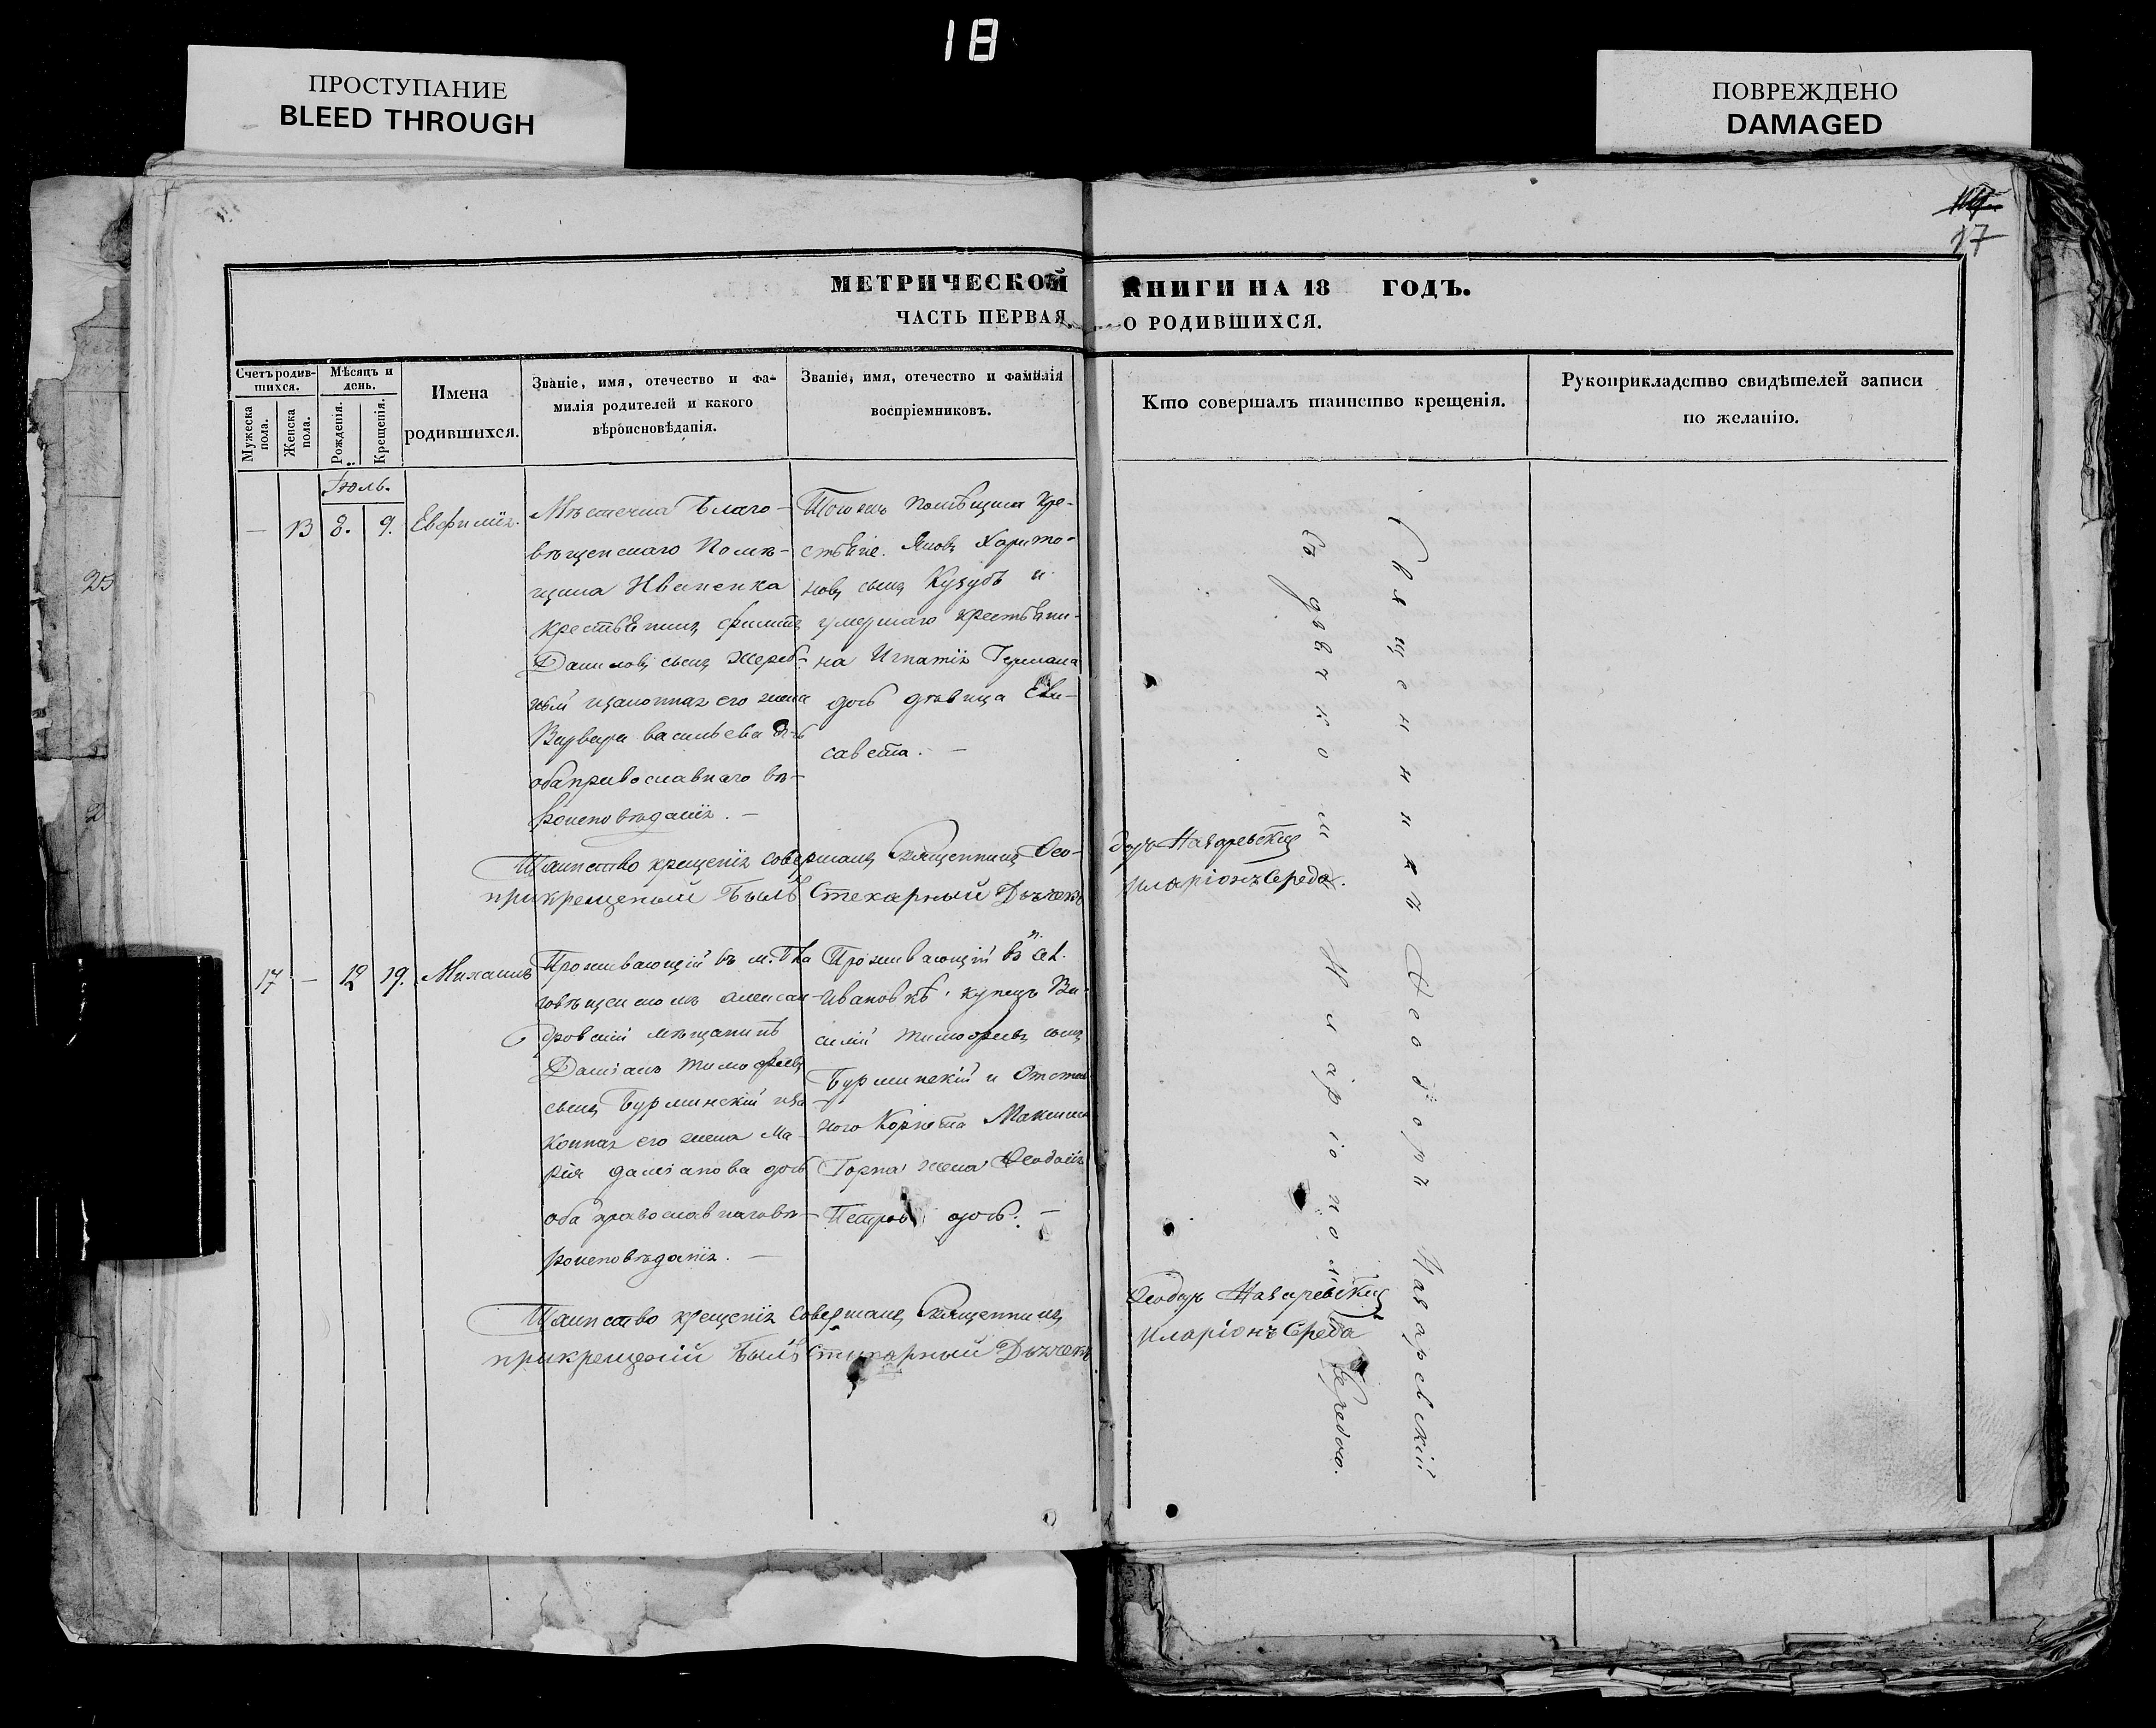 18
ПРОСТУПАНИЕ
BLEED THROUGH
ПОВРЕЖДЕНО
DAMAGED
17
МЕТРИЧЕСКОЙ КНИГИ НА 18 ГОДЪ.
ЧАСТЬ ПЕРВАЯ О РОДИВШИХСЯ.
Счетъ родив-
шихся.
Мужеска
пола.
Женска
пола.
Мѣсяцъ и
день.
Рожденія.
Крещенія.
Имена
родившихся.
Званіе, имя, отечество и фа-
милія родителей и какого
вѣроисновѣданія.
Званіе, имя, отечество и фамилія
воспріемниковъ.
Кто совершалъ таинство крещенія.
Рукоприкладство свидѣтелей записи
по желанію.
Іюль.
— 13 8. 9. Евфимія.
Мѣстечка Благо-
вѣщенскаго Помѣ-
щика Иваненка
крестьянинъ
Даниловъ сынъ Жереб-
законная его жена
Варвара Васильева
оба православнаго вѣ-
роисповѣданія. —
Тогожъ Помѣщика кре-
стьяне. Яковъ Харито-
новъ сынъ Кузубъ и
умершаго крестьяни-
на Игнатія Германа
дочь дѣвица Ели-
савета. —
Таинство крещенія совершалъ Священникъ Ѳео-
доръ Назаревскій
при крещеніи былъ Стихарный Дьячекъ
Иларіонъ Середа.
17 — 12 19. Михаилъ
Проживающій въ м. Бла
говѣщенскомъ Алексан-
дровскій мѣщанинъ
Даміанъ Тимофеевъ
сынъ Бурминскій и за
конная его жена Ма-
рія Даміанова дочь
оба православнаго вѣ-
роисповѣданія. —
Проживающій въ сел.
Ивановкѣ купецъ Ва-
силій Тимофеевъ сынъ
Бурминскій и Отстав-
ного Корнета Максима
Горна жена Ѳеодосія
Петрова дочь. —
Таинство крещенія совершалъ Священникъ
Ѳеодоръ Назаревскій
при крещеніи былъ Стихарный Дьячекъ
Иларіонъ Середа
Священникъ Ѳеодоръ Назаревскій
Съ дьячкомъ Иларіономъ Середою.
25
2